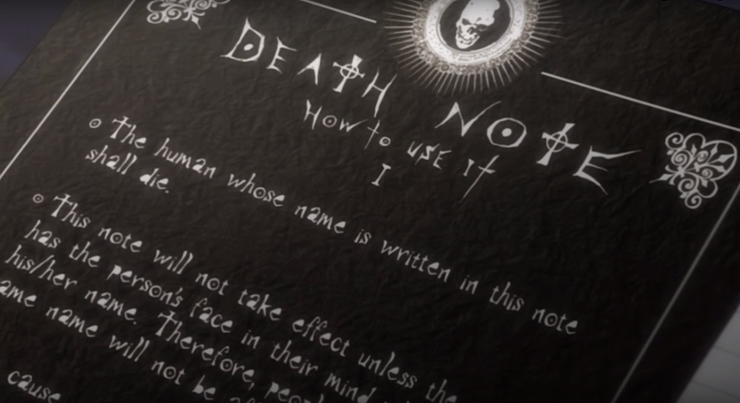 DEATH NOTE
How to use it
I
The human whose name is written in this note
shall die.
This note will not take effect unless the
has the person's face in their mind
his/her name. Therefore,
ame name will not be
cause